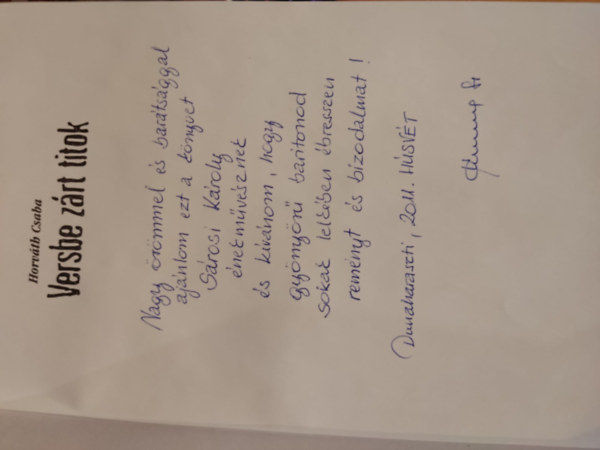 Horváth Csaba
Versbe zárt titok
Nagy örömmel és barátsággal
ajánlom ezt a könyvet
Sárosi Károly
énekművésznek
és kívánom, hogy
gyönyörű baritonod
sokak lelkében ébresszen
reményt és bizodalmat!
Dunaharaszti, 2011. HÚSVÉT